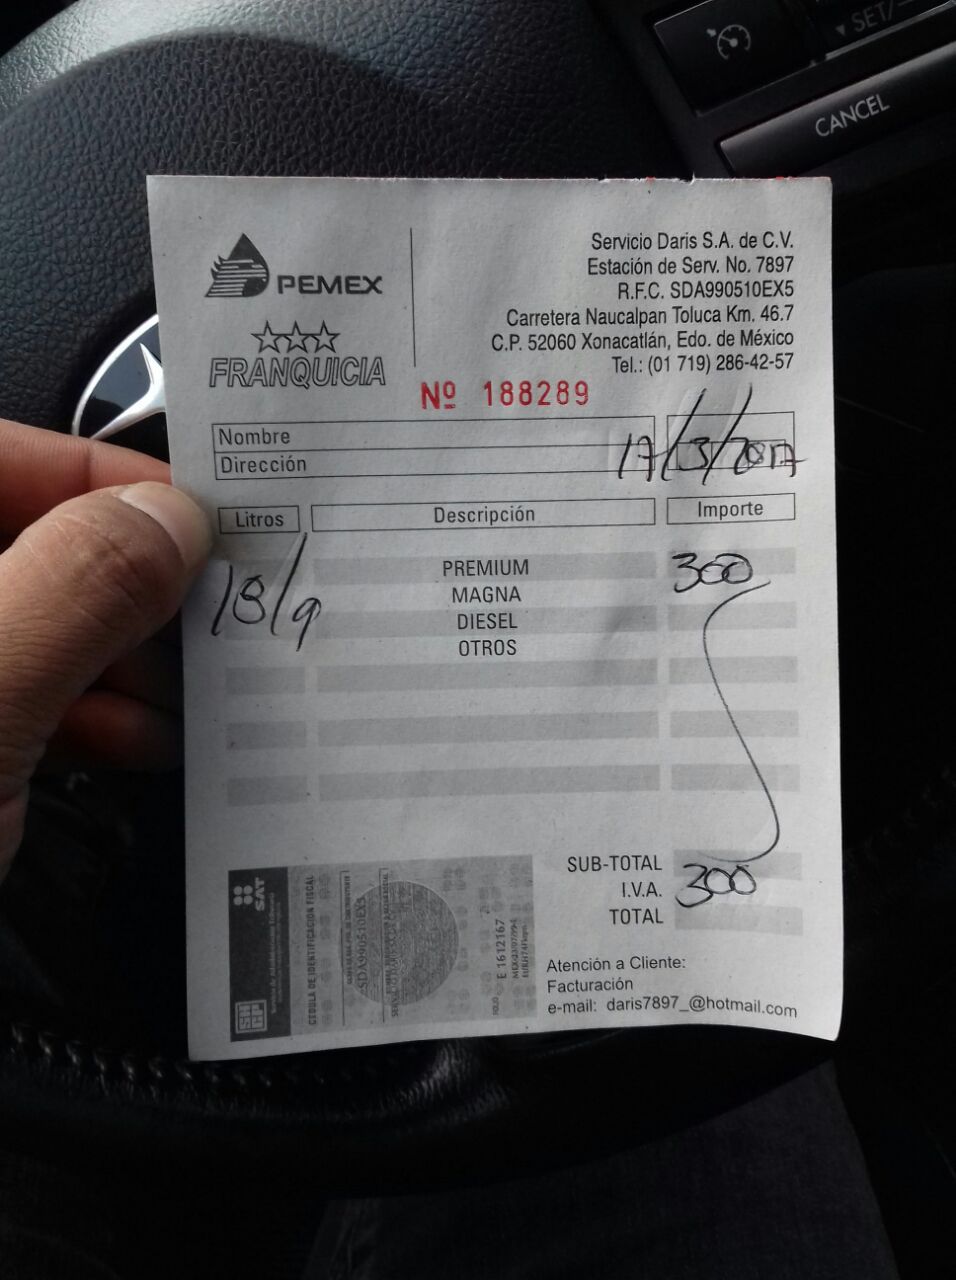 SET/-
CANCEL
PEMEX
FRANQUICIA
Servicio Daris S.A. de C.V.
Estación de Serv. No. 7897
R.F.C. SDA990510EX5
Carretera Naucalpan Toluca Km. 46.7
C.P. 52060 Xonacatlán, Edo. de México
Tel.: (01 719) 286-42-57
Nº 188289
Nombre
Dirección
17/3/2017
Litros Descripción Importe
18/9 PREMIUM 300
MAGNA
DIESEL
OTROS
SUB-TOTAL
I.V.A. 300
TOTAL
SAT
SHCP
CEDULA DE IDENTIFICACION FISCAL
SDA990510EX5
FOLIO E 1612167
Atención a Cliente:
Facturación
e-mail: daris7897_@hotmail.com